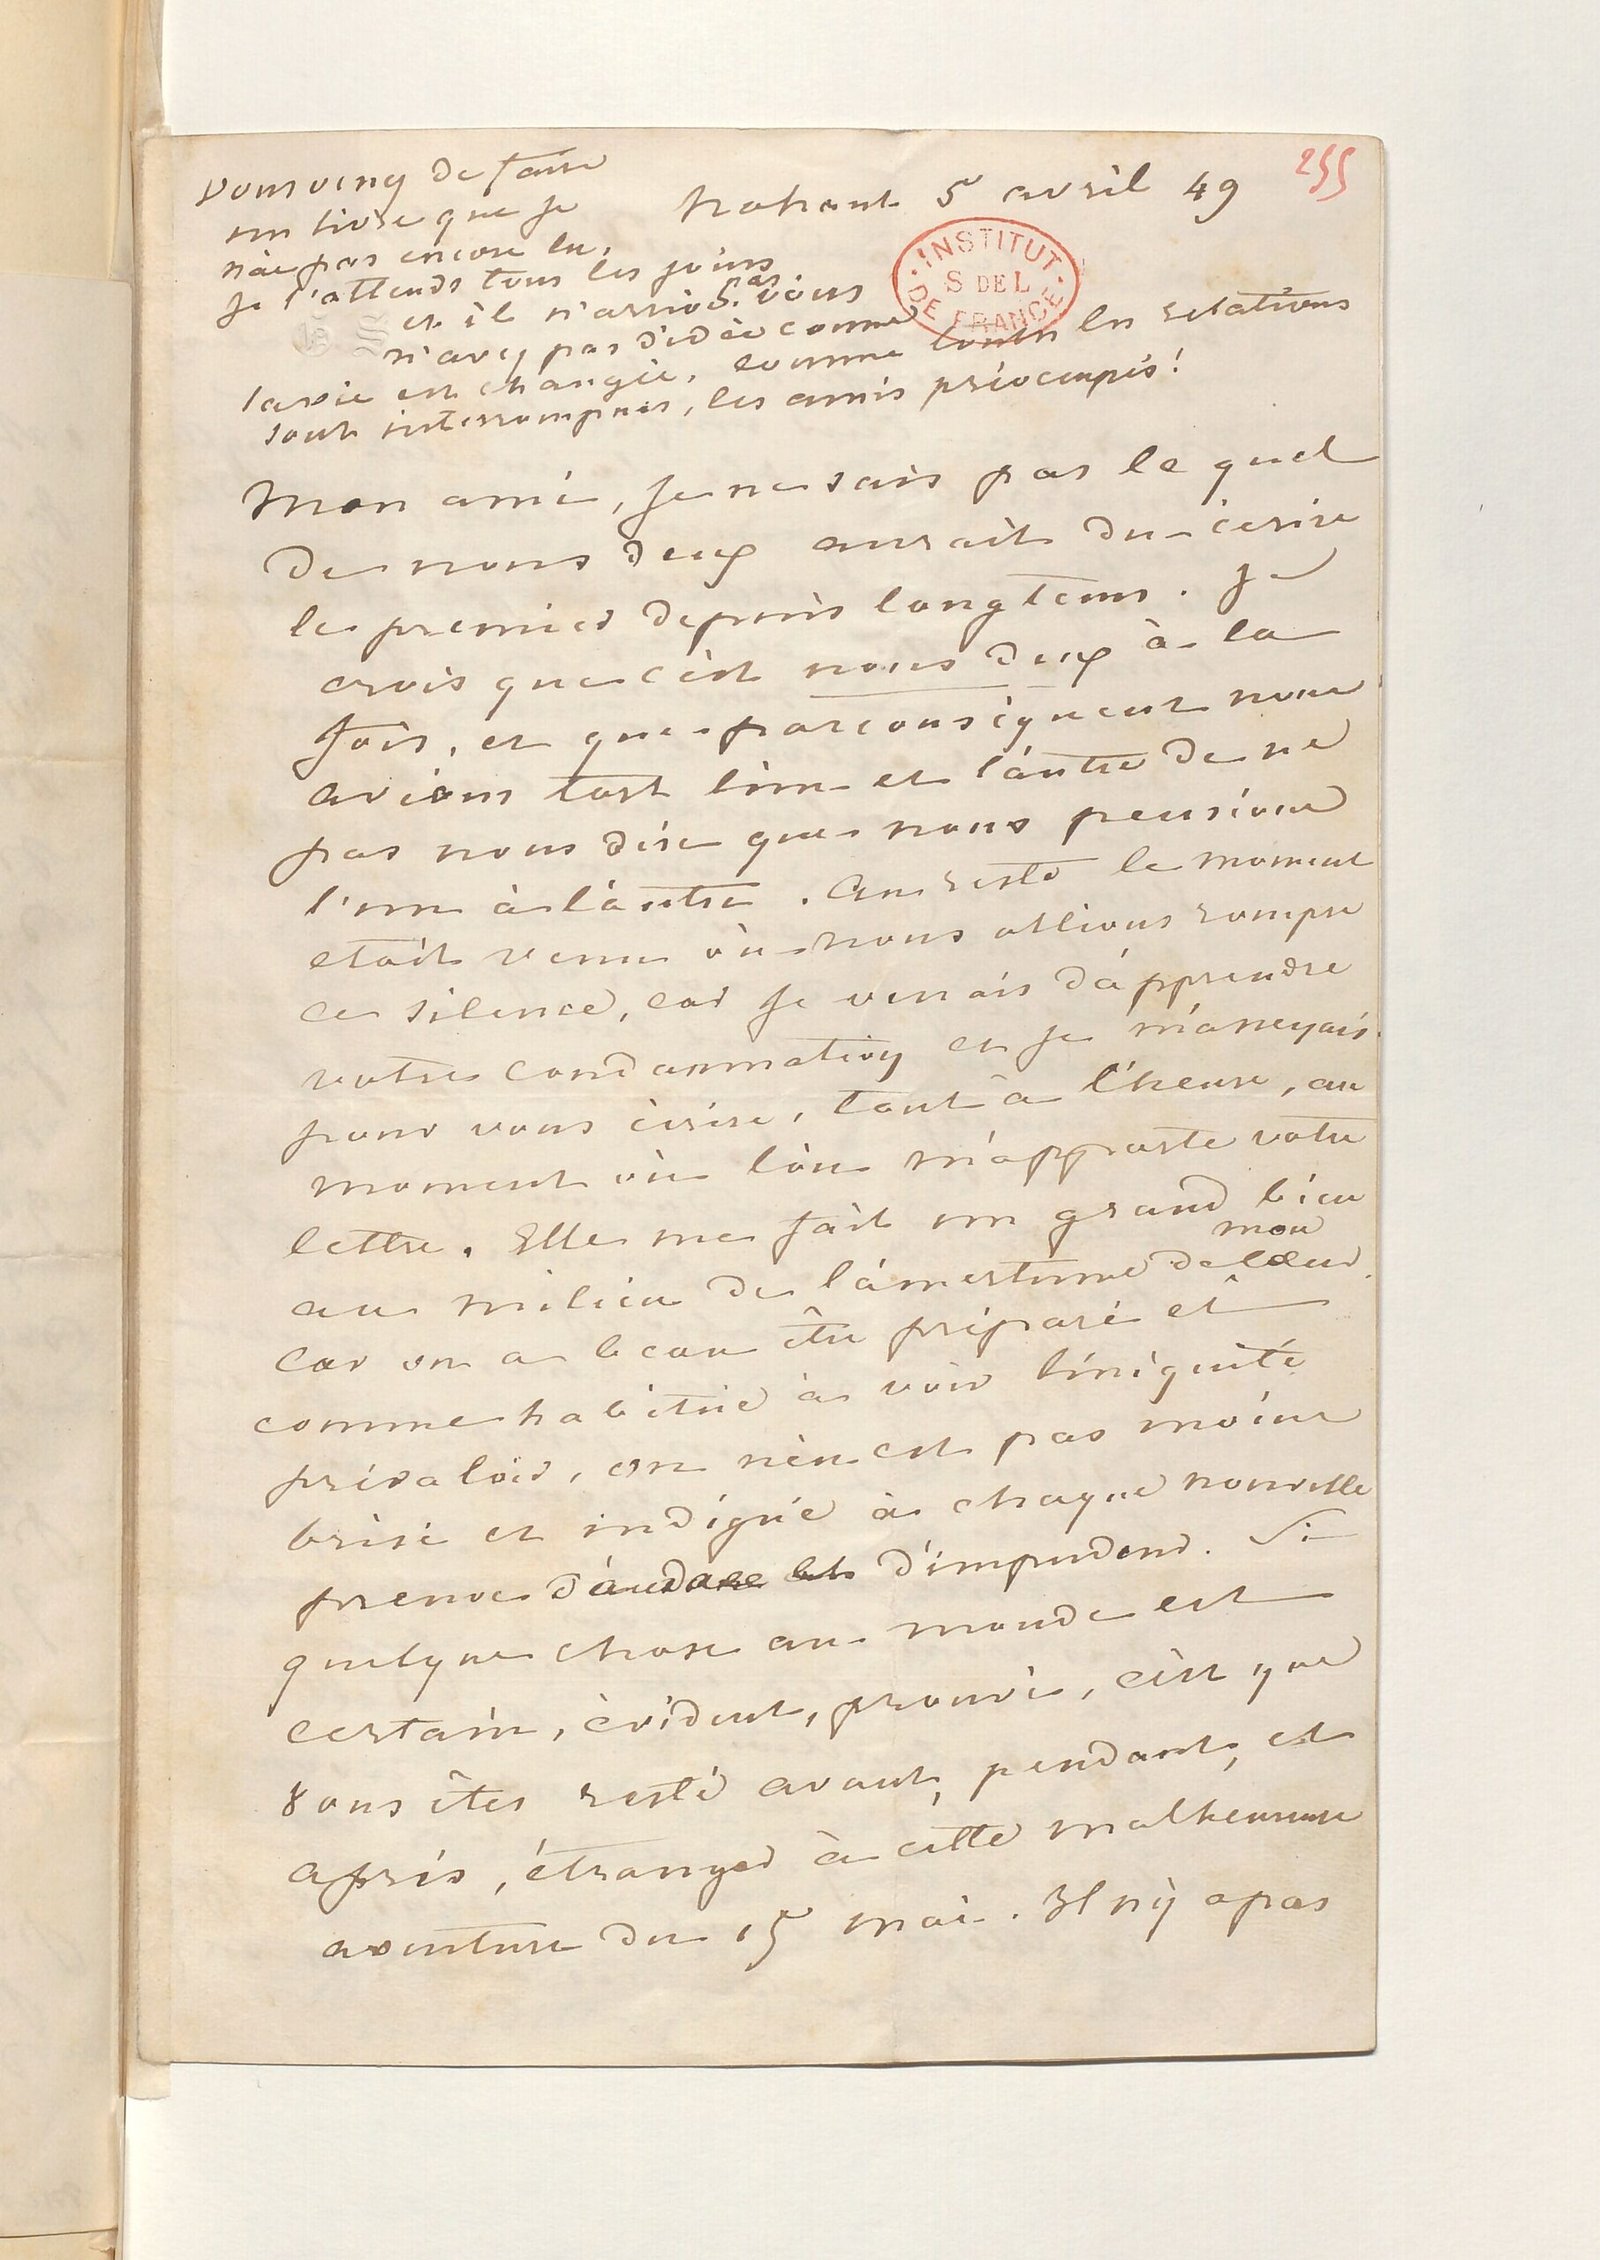 255
Nohant 5 avril 49
INSTITUT
S DE L
DE FRANCE
vous venez de faire
un livre que je
n'ai pas encore lu,
je l'attends tous les jours
et il n'arrive pas. Vous
n'avez pas d'idée comme
la vie est changée, comme toutes les relations
sont interrompues, les amis préoccupés!
Mon ami, je ne sais pas le quel
de nous deux aurait du écrire
le premier depuis longtems. Je
crois que c'est nous deux à la
fois, et que par conséquent nous
avions tort l'un et l'autre de ne
pas nous dire que nous pensions
l'un à l'autre. Au reste le moment
etait venu où nous allions rompre
ce silence, car je venais d'apprendre
votre condamnation et je m'asseyais
pour vous écrire, tout à l'heure, au
moment où l'on m'apporte votre
lettre. Elle me fait un grand bien
au milieu de l'amertume de mon cœur.
Car on a beau être préparé et
comme habitué à voir l'iniquité
prévaloir, on n'en est pas moins
brisé et indigné à chaque nouvelle
preuve d'audace et d'impudeur. Si
quelque chose au monde est
certain, évident, prouvé, c'est que
vous êtes resté avant, pendant, et
après, étranger à cette malheureuse
aventure du 15 mai. Il n'y a pas